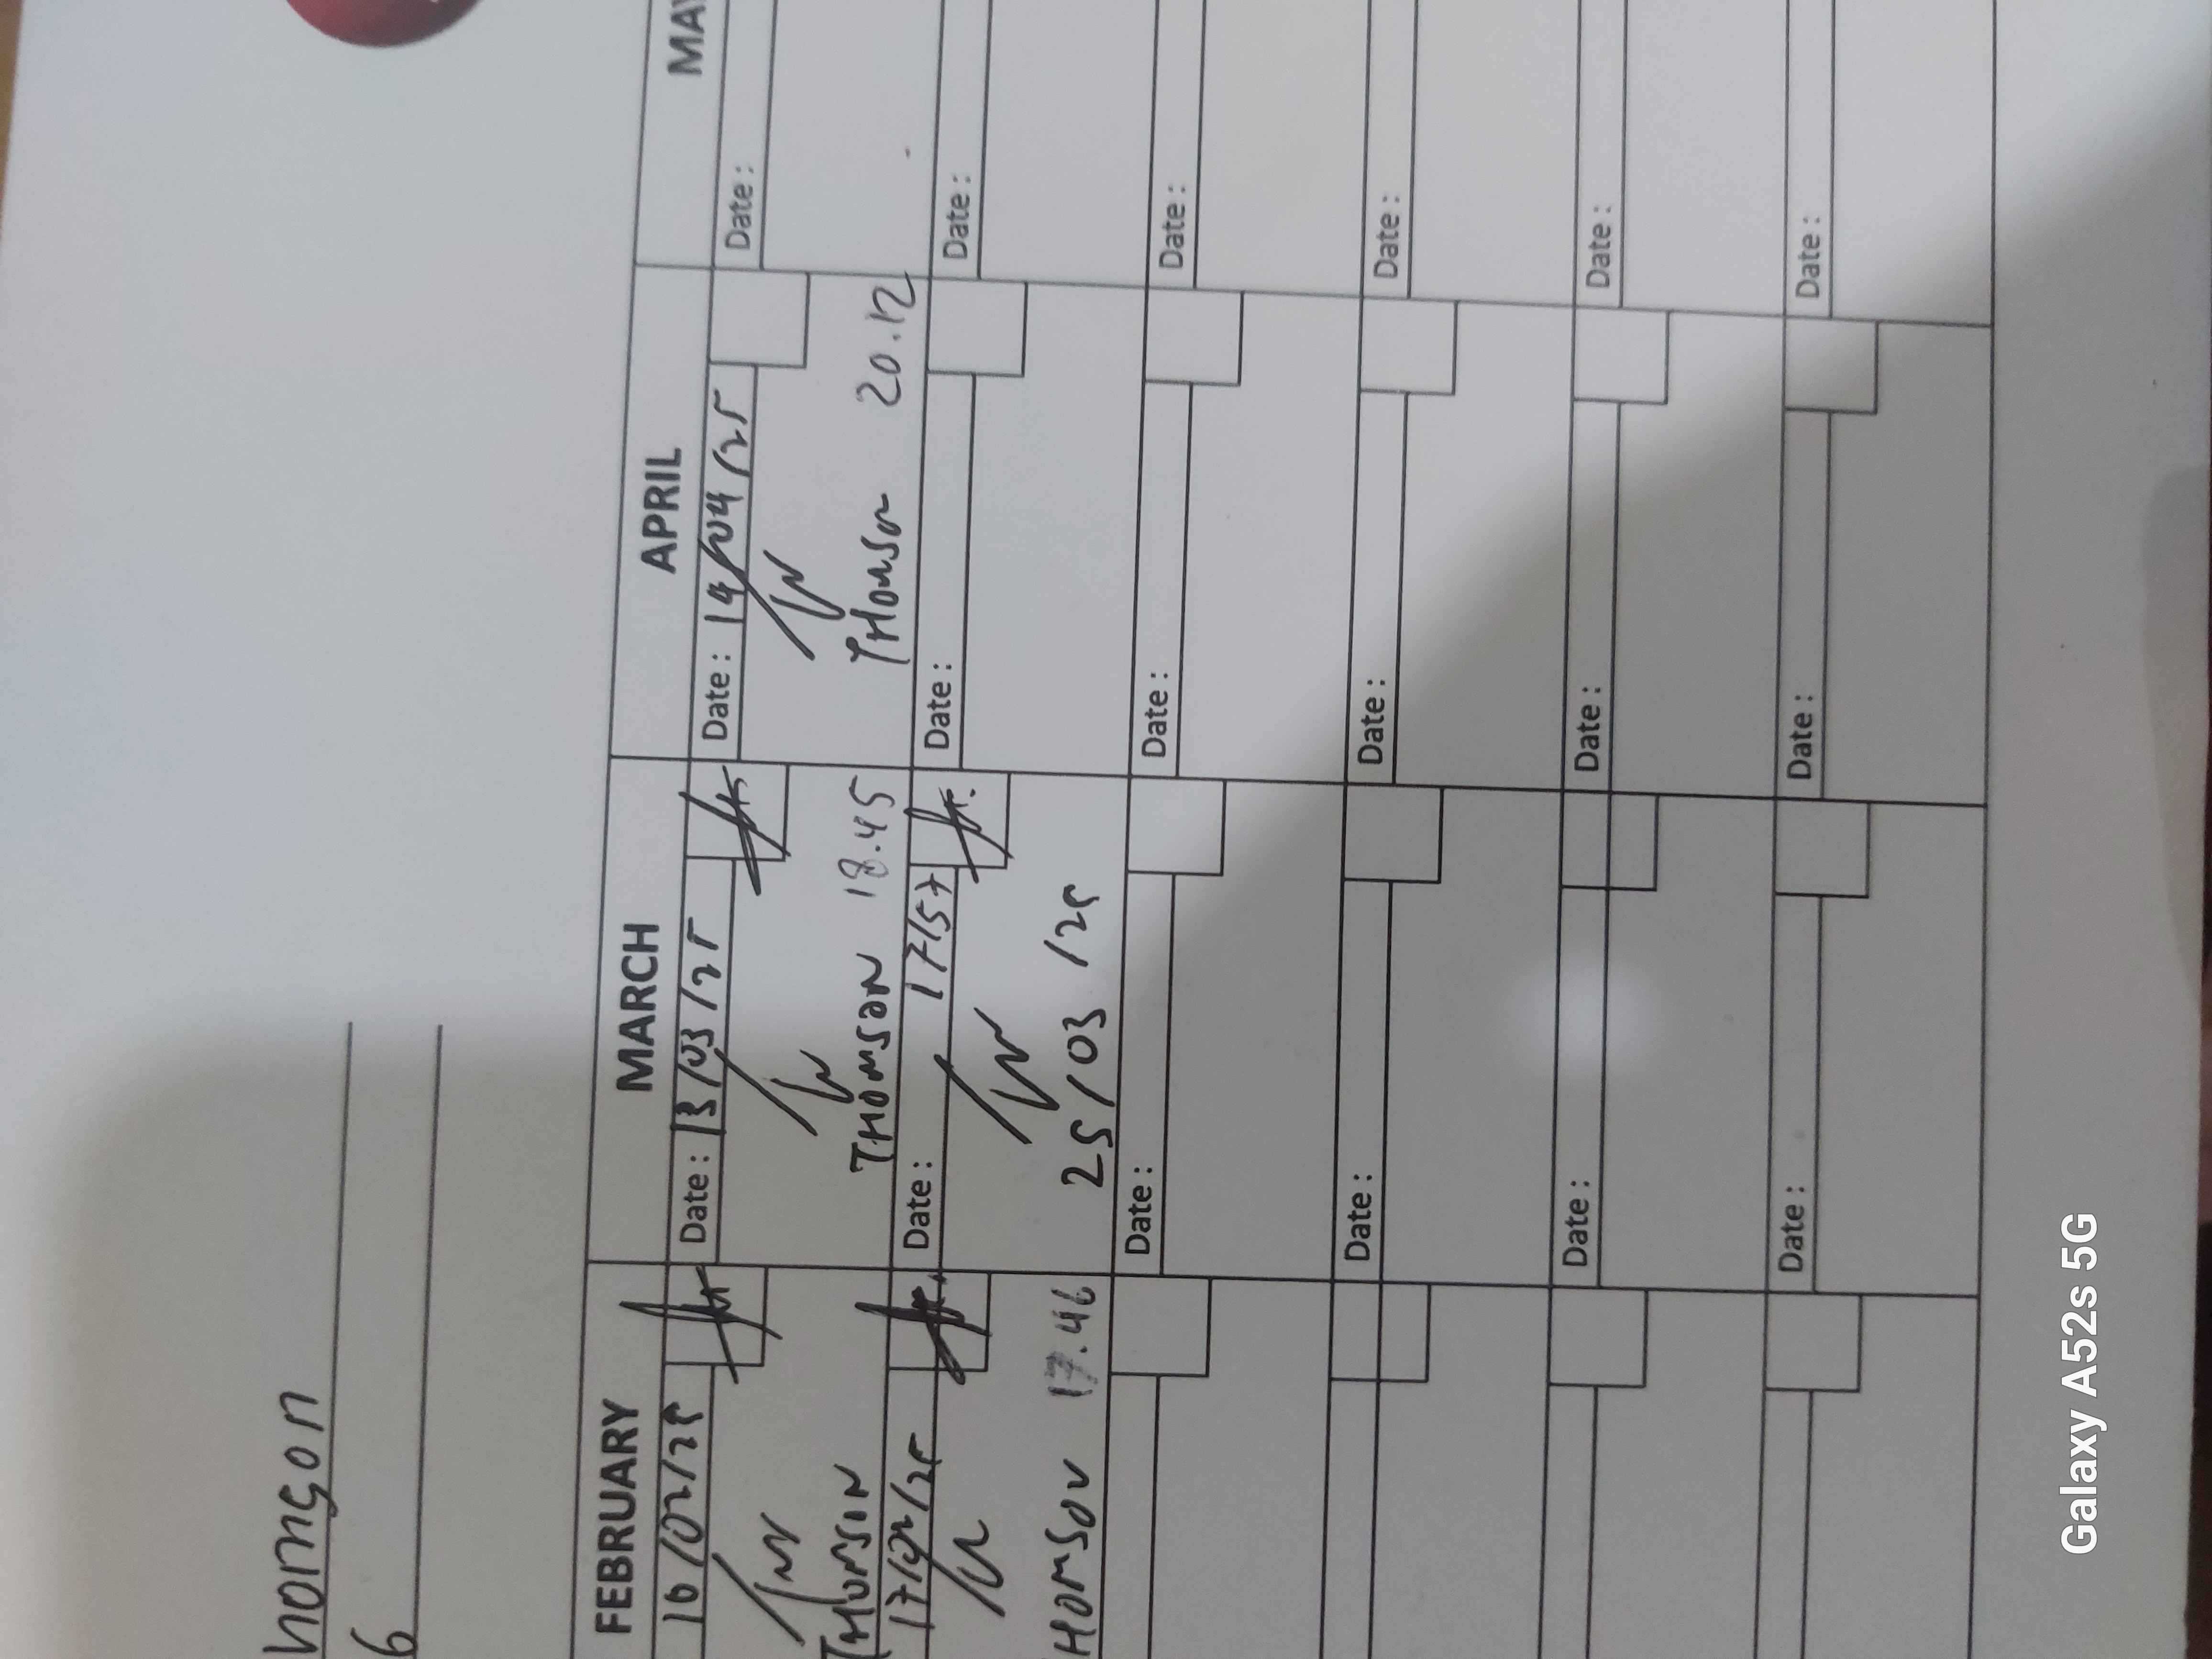 homson
6
FEBRUARY MARCH APRIL MAY
16/02/25 Date: 13/03/25 Date: 14/04/25 Date:
THOMSON THOMSON 18.45 THOMSON 20.12
17/02/25 Date: 17/57 Date: Date:
HOMSON 17.46 25/03/25
Date: Date: Date:
Date: Date: Date:
Date: Date: Date:
Date: Date: Date:
Galaxy A52s 5G